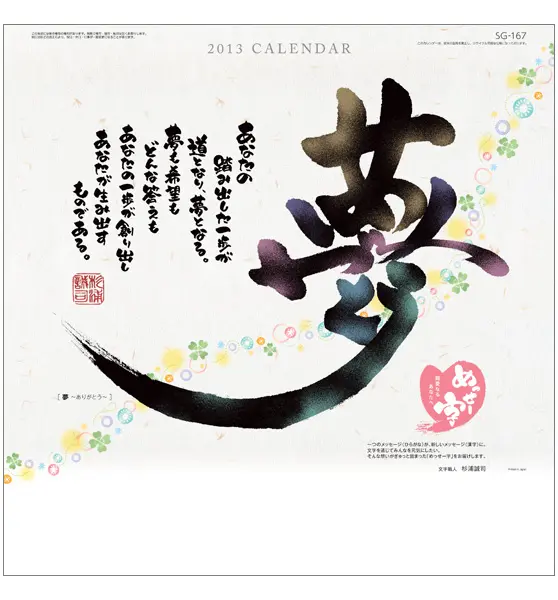 SG-167
2013 CALENDAR
あなたの
踏み出した一歩が
道となり、夢となる。
夢も希望も
どんな答えも
あなたの一歩が創り出し
あなたが生み出す
ものである。
杉浦誠司
[ 夢 〜ありがとう〜 ]
めっせー字
一つのメッセージ(ひらがな)が、新しいメッセージ(漢字)に。
文字を通じてみんなを元気にしたい。
そんな想いがぎゅっと詰まった「めっせー字」をお届けします。
文字職人 杉浦誠司